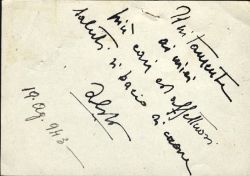 Unitamente
ai miei
più cari ed affettuosi
saluti vi bacio di cuore
Aldo
19. Ag. 943